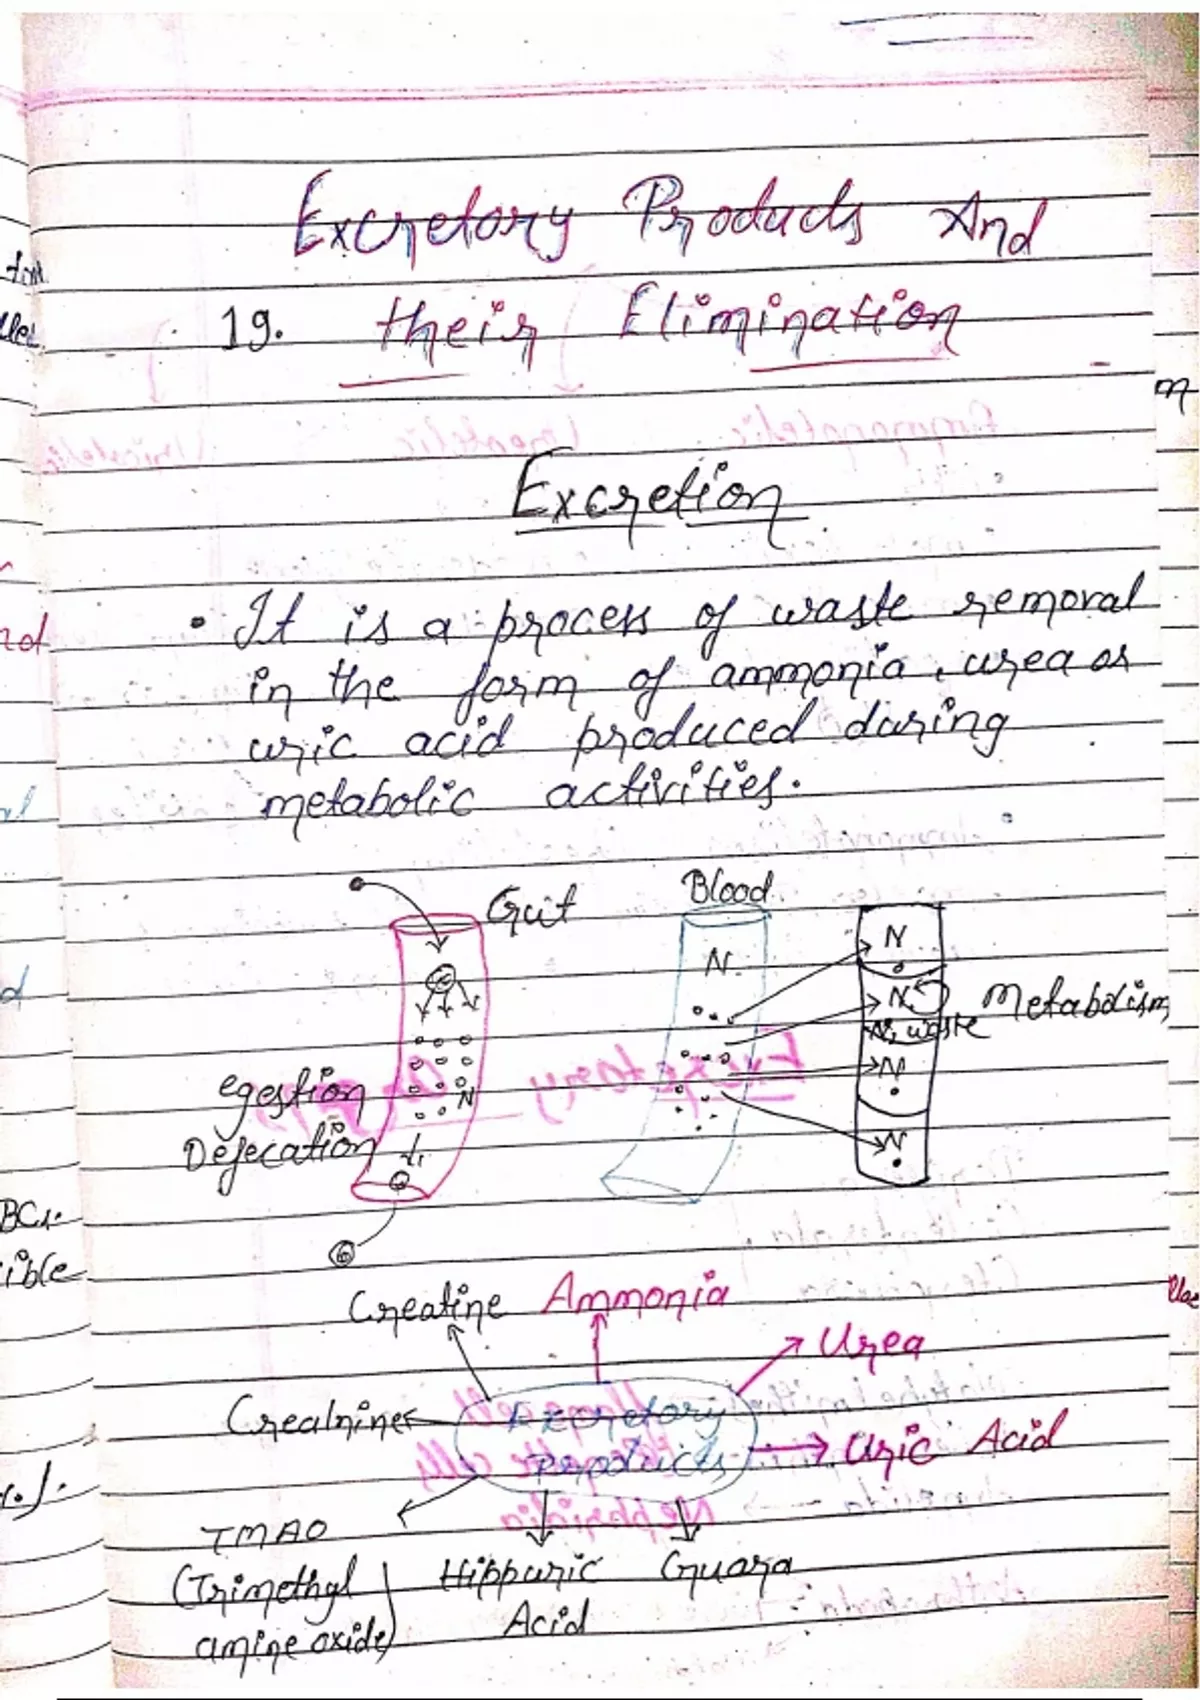 Excretory Products And
19. their Elimination
Excretion
• It is a process of waste removal
in the form of ammonia, urea or
uric acid produced during
metabolic activities.
Gut
Blood
N
N
N
Metabolism
N, waste
N
N
N
egestion
Defecation
Creatine
Ammonia
Urea
Creatnine
Excretory
products
Uric Acid
TMAO
(Trimethyl
amine oxide)
Hippuric
Acid
Guara